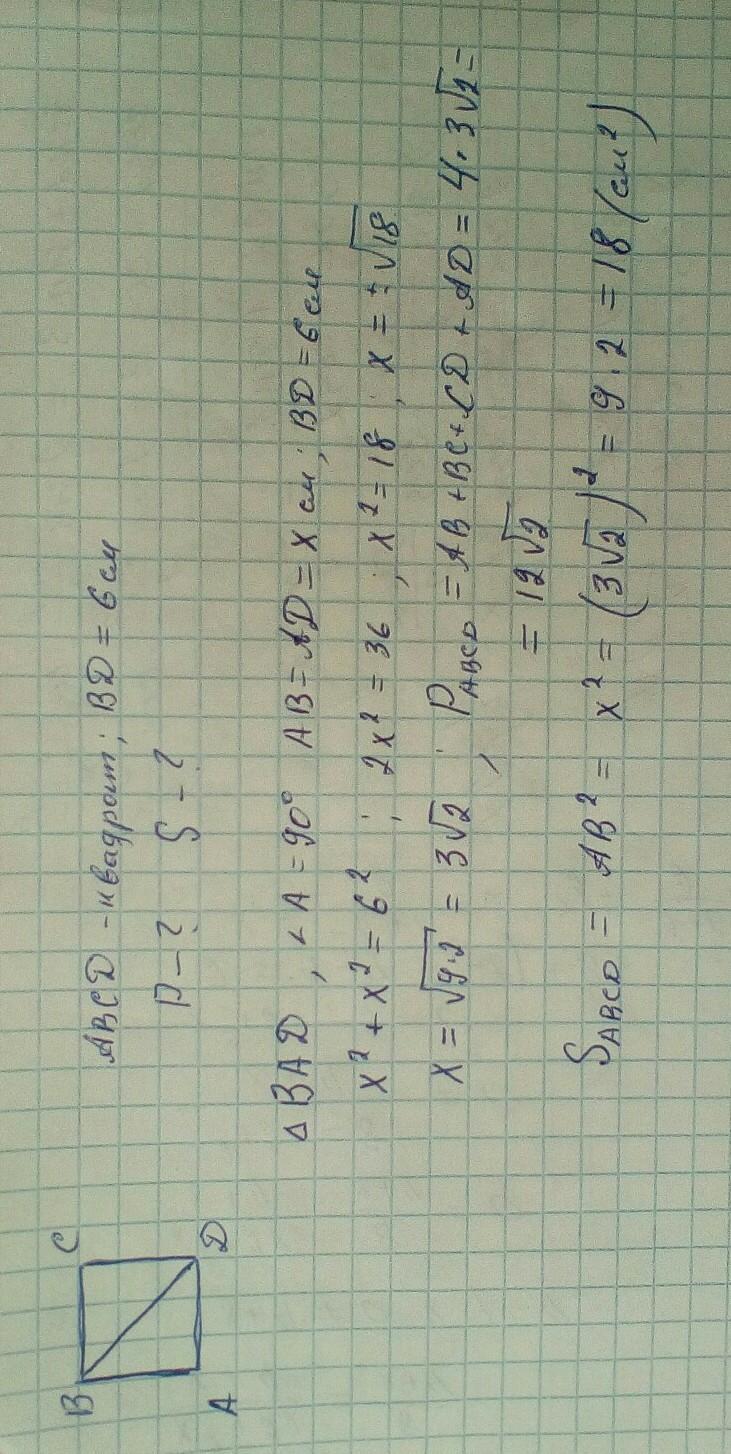 B C
A D
ABCD - квадрат; BD = 6 см
P - ? S - ?
△BAD, ∠A = 90° AB = AD = x см; BD = 6 см
x² + x² = 6² ; 2x² = 36 ; x² = 18 ; x = ±√18
x = √9·2 = 3√2 ; P_ABCD = AB + BC + CD + AD = 4·3√2 =
= 12√2
S_ABCD = AB² = x² = (3√2)² = 9·2 = 18 (см²)